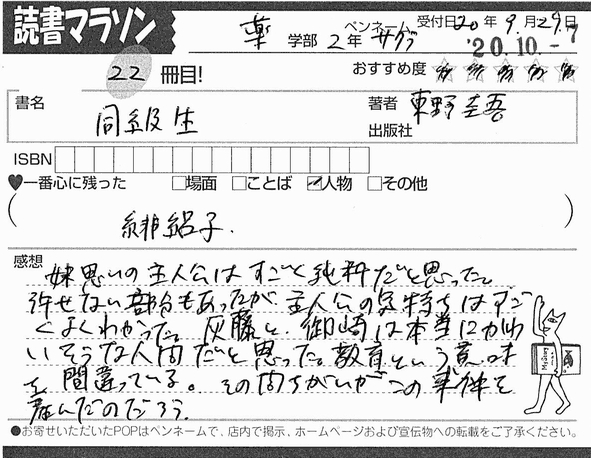 読書マラソン
薬 学部 2年 ペンネーム サクラ 受付日 20年 9月29日
'20.10.-7
22 冊目! おすすめ度
書名 同級生 著者 東野圭吾
出版社
ISBN
♥一番心に残った □場面 □ことば ☑人物 □その他
( 緋絽子. )
感想
妹思いの主人公はすごく純粋だと思った。
許せない部分もあったが、主人公の気持ちはすご
くよくわかった。灰藤と、御崎は本当にかわ
いそうな人間だと思った。教育という意味
を間違っている。その間ちがいがこの事件を
産んだのだろう。
●お寄せいただいたPOPはペンネームで、店内で掲示、ホームページおよび宣伝物への転載をご了承ください。